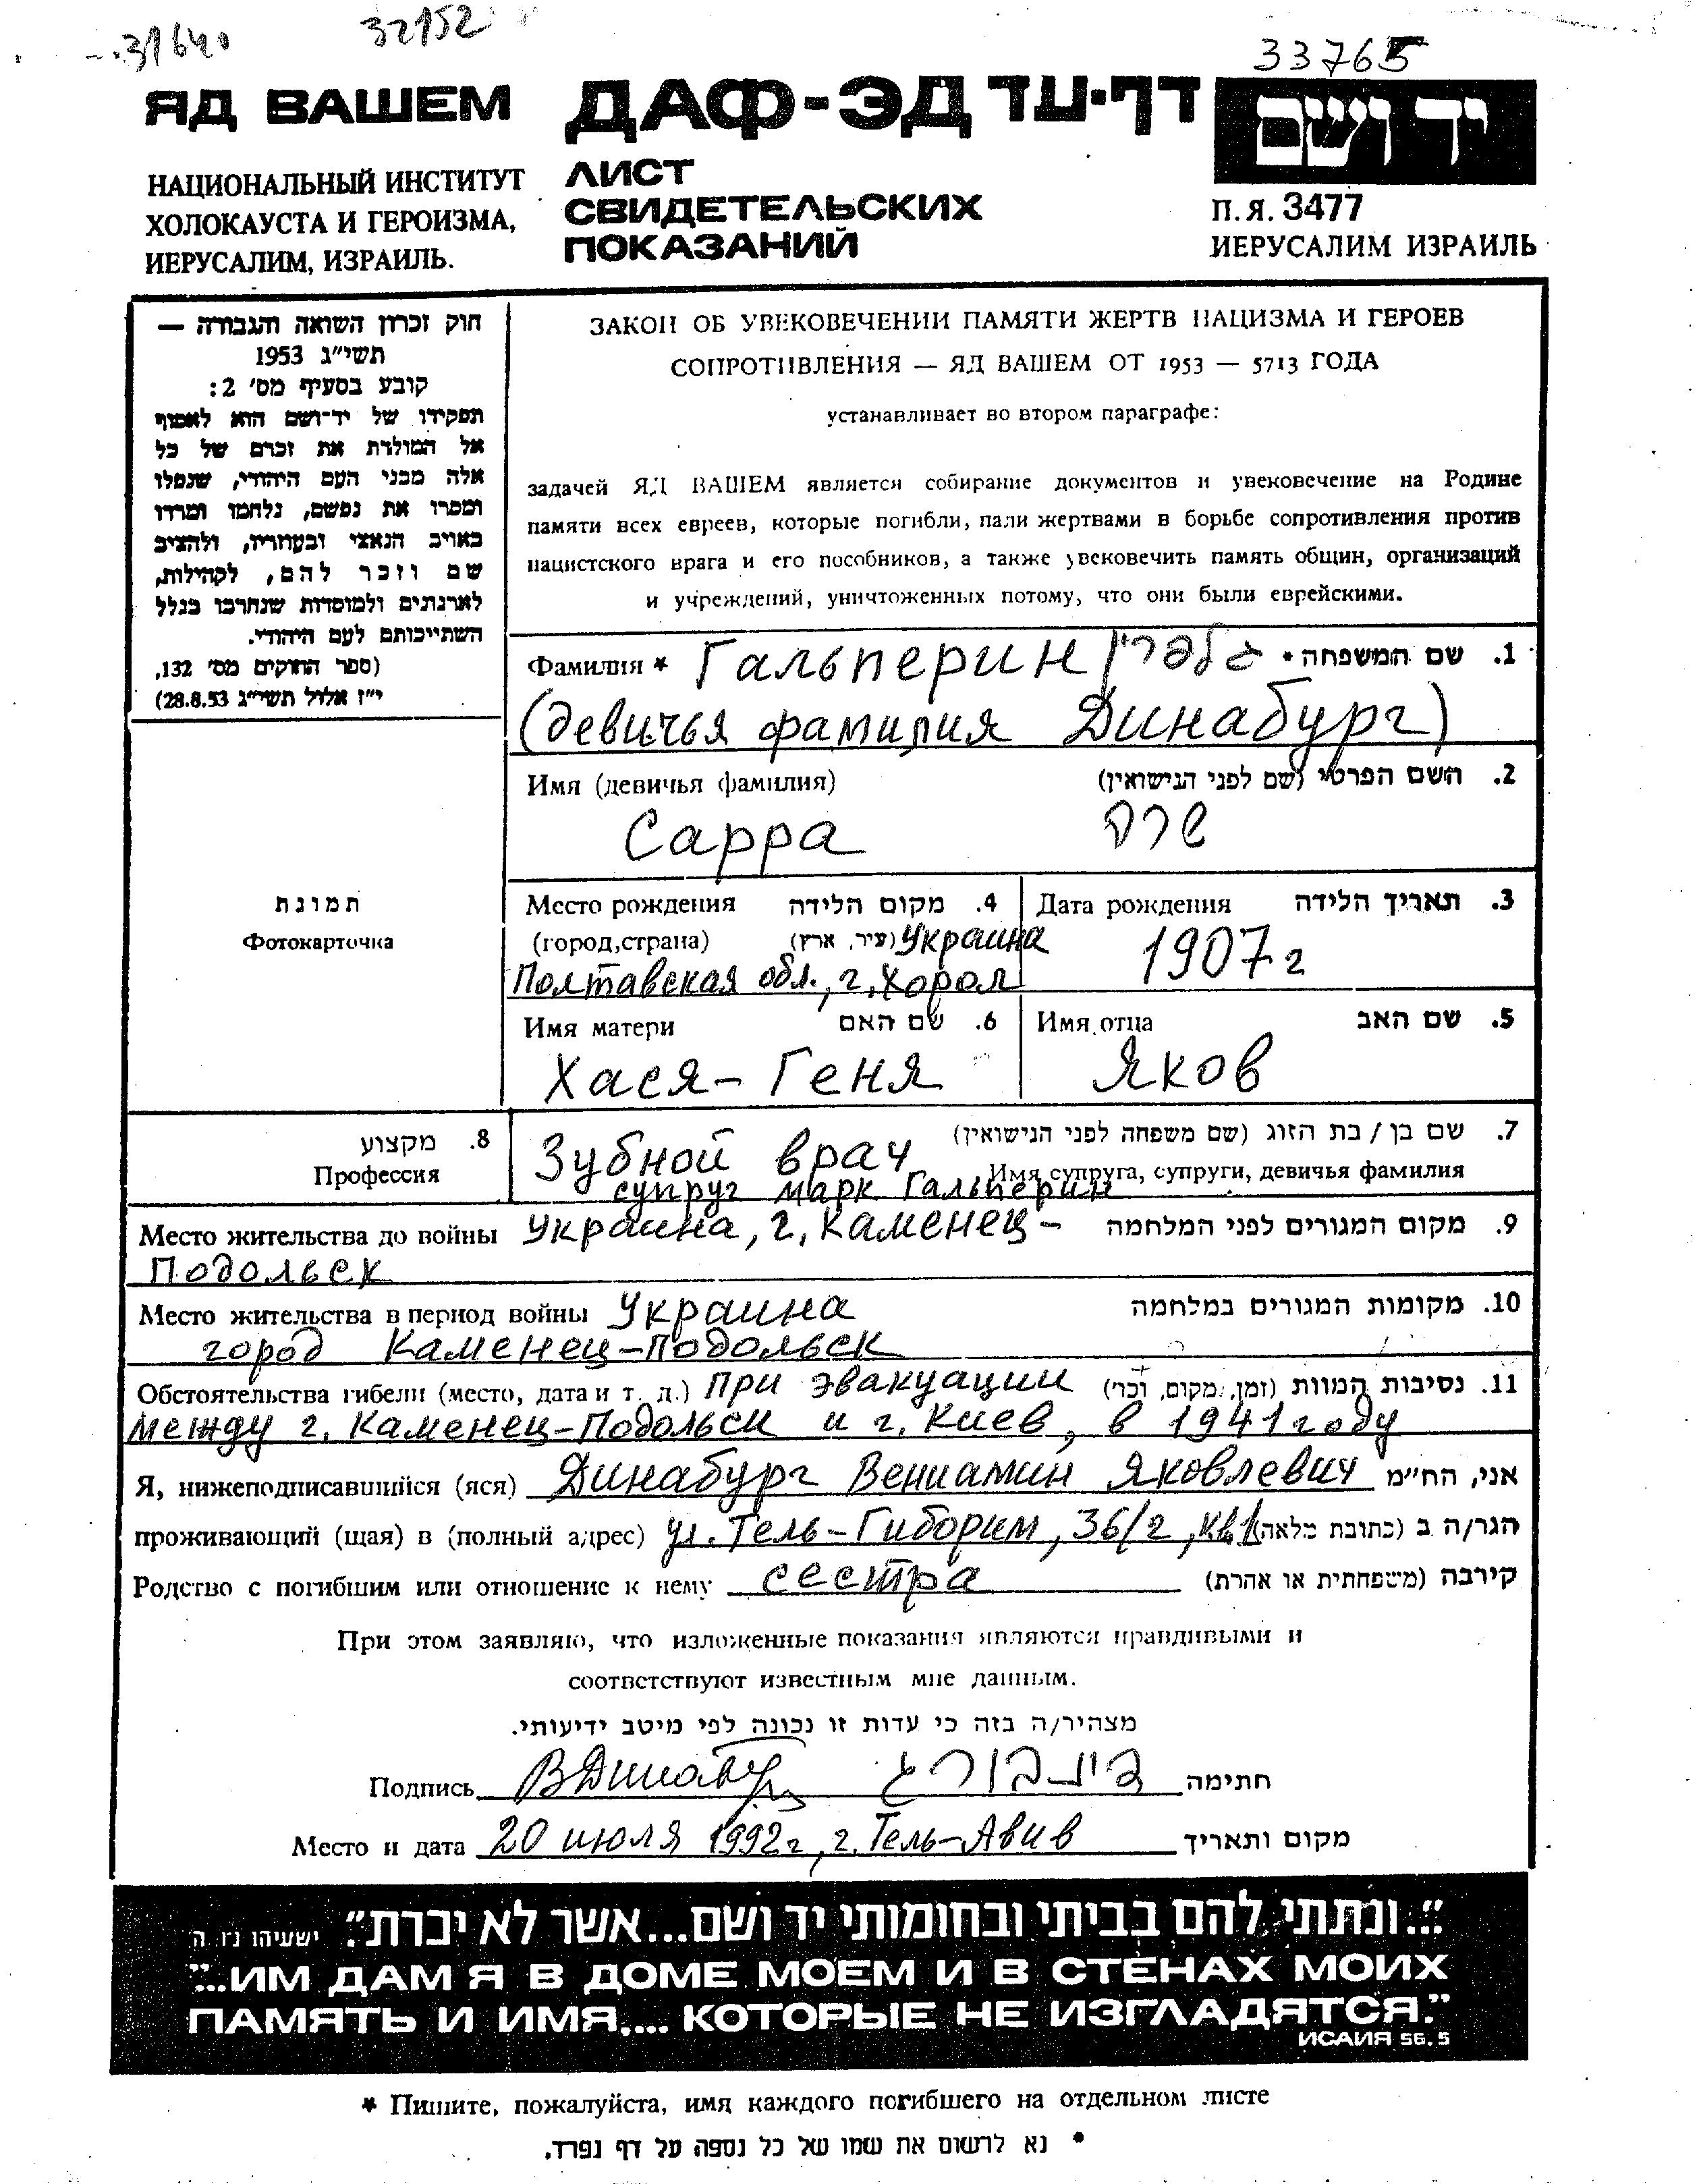 31640
32152
33765
ЯД ВАШЕМ
ДАФ-ЭД דף-עד
יד ושם
НАЦИОНАЛЬНЫЙ ИНСТИТУТ
ХОЛОКАУСТА И ГЕРОИЗМА,
ИЕРУСАЛИМ, ИЗРАИЛЬ.
ЛИСТ
СВИДЕТЕЛЬСКИХ
ПОКАЗАНИЙ
П.Я. 3477
ИЕРУСАЛИМ ИЗРАИЛЬ
חוק זכרון השואה והגבורה —
תשי"ג 1953
קובע בסעיף מס' 2:
תפקידו של יד-ושם הוא לאסוף
אל המולדת את זכרם של כל
אלה מבני העם היהודי, שנפלו
ומסרו את נפשם, נלחמו ומרדו
באויב הנאצי ובעוזריו, ולהציב
שם וזכר להם, לקהילות,
לארגונים ולמוסדות שנחרבו בגלל
השתייכותם לעם היהודי.
(ספר החוקים מס' 132,
י"ז אלול תשי"ג 28.8.53)
ЗАКОН ОБ УВЕКОВЕЧЕНИИ ПАМЯТИ ЖЕРТВ НАЦИЗМА И ГЕРОЕВ
СОПРОТИВЛЕНИЯ — ЯД ВАШЕМ ОТ 1953 — 5713 ГОДА
устанавливает во втором параграфе:
задачей ЯД ВАШЕМ является собирание документов и увековечение на Родине
памяти всех евреев, которые погибли, пали жертвами в борьбе сопротивления против
нацистского врага и его пособников, а также увековечить память общин, организаций
и учреждений, уничтоженных потому, что они были еврейскими.
Фамилия * Гальперин גלפרין 1. שם המשפחה *
(девичья фамилия Динабург)
Имя (девичья фамилия) 2. השם הפרטי (שם לפני הנישואין)
Сарра שרה
תמונת
Фотокарточка
Место рождения 4. מקום הלידה
(город, страна) (עיר, ארץ) Украина
Полтавская обл., г. Хорол
Дата рождения 3. תאריך הלידה
1907 г
Имя матери 6. שם האם
Хася-Геня
Имя отца 5. שם האב
Яков
8. מקצוע
Профессия
Зубной врач 7. שם בן / בת הזוג (שם משפחה לפני הנישואין)
Имя супруга, супруги, девичья фамилия
супруг Марк Гальперин
Место жительства до войны Украина, г. Каменец- 9. מקום המגורים לפני המלחמה
Подольск
Место жительства в период войны Украина 10. מקומות המגורים במלחמה
город Каменец-Подольск
Обстоятельства гибели (место, дата и т. д.) При эвакуации 11. נסיבות המוות (זמן, מקום, וכו')
между г. Каменец-Подольск и г. Киев, в 1941 году
Я, нижеподписавшийся (яся) Динабург Вениамин Яковлевич אני, הח"מ
проживающий (щая) в (полный адрес) ул. Тель-Гиборим, 36/2, кв1 הגר/ה ב (כתובת מלאה)
Родство с погибшим или отношение к нему сестра קירבה (משפחתית או אחרת)
При этом заявляю, что изложенные показания являются правдивыми и
соответствуют известным мне данным.
מצהיר/ה בזה כי עדות זו נכונה לפי מיטב ידיעותי.
Подпись ВДинабург דינבורג חתימה
Место и дата 20 июля 1992 г, г. Тель-Авив מקום ותאריך
"...ונתתי להם בביתי ובחומותי יד ושם...אשר לא יכרת". ישעיהו נ"ו ה
"...ИМ ДАМ Я В ДОМЕ МОЕМ И В СТЕНАХ МОИХ
ПАМЯТЬ И ИМЯ.... КОТОРЫЕ НЕ ИЗГЛАДЯТСЯ."
ИСАИЯ 56.5
* Пишите, пожалуйста, имя каждого погибшего на отдельном листе
* נא לרשום את שמו של כל נספה על דף נפרד.